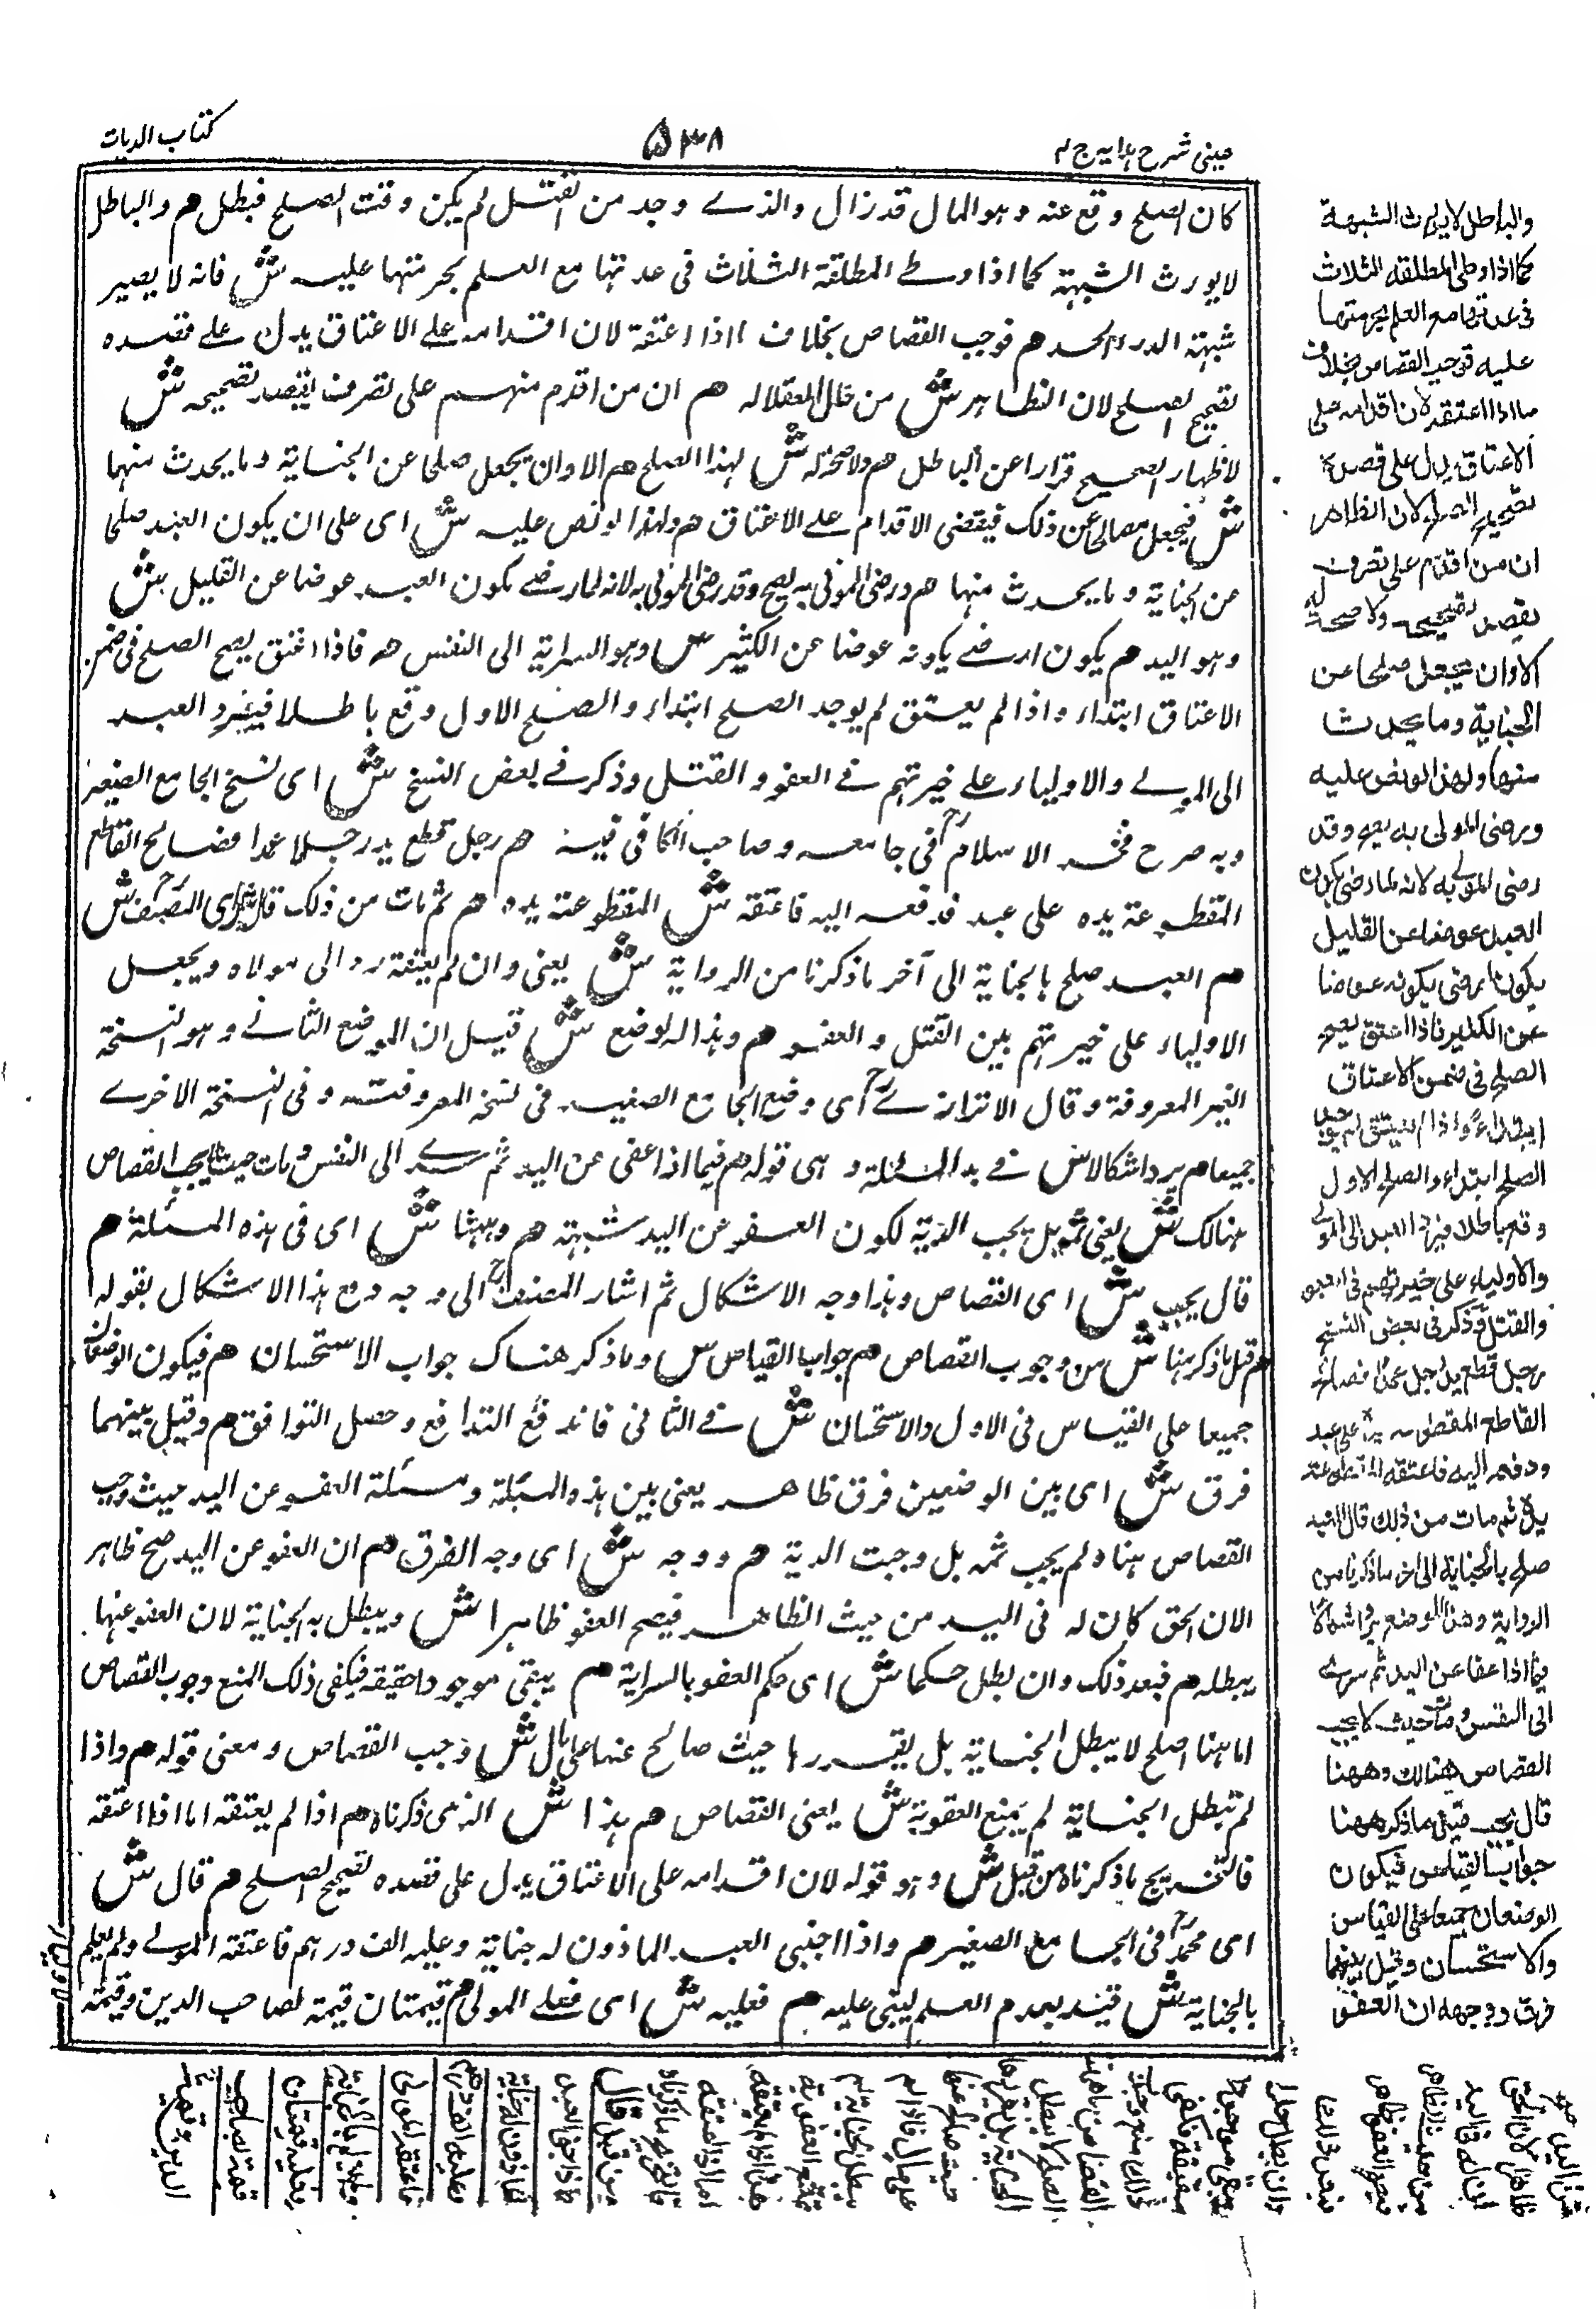 عینی شرح ہدایہ ج ۴
۵۳۸
کتاب الدیات
کان الصلح وقع عنه وہو المال قد زال والذے وجد من القتل لم یکن وقت الصلح فبطل ھم والباطل
لا یورث الشبہة کما اذا وطے المطلقة الثلاث فی عدتہا مع العلم بحرمتہا علیہ ش فانه لا یصیر
شبہة الدرء الحد ھم فوجب القصاص بخلاف ما اذا اعتقه لان اقدامه علے الاعتاق یدل علے قصده
تصحیح الصلح لان الظاہر ش من حال العقلاء ھم ان من اقدم منہم علی تصرف یقصد تصحیحه ش
لاظہار الصحیح فرارا عن الباطل ھم ولا صحة له ش لہذا الصلح ھم الا وان یجعل صلحا عن الجنایة وما یحدث منہا
ش فیجعل مصالحا عن ذلک فیقضی الاقدام علے الاعتاق ھم ولہذا لو نص علیه ش ای علی ان یکون العبد صلحا
عن الجنایة وما یحدث منہا ھم ورضی المولی به یصح وقد رضی المولی به لانه لما رضے بکون العبد عوضا عن القلیل ش
وہو الید ھم یکون ارضے بکونه عوضا عن الکثیر ش وہو السرایة الی النفس ھم فاذا اعتق یصح الصلح فی ضمن
الاعتاق ابتداء واذا لم یعتق لم یوجد الصلح ابتداء والصلح الاول وقع باطلا فیرد العبد
الی المولے والاولیاء علے خیرتہم فے العفو والقتل وذکر فے بعض النسخ ش ای نسخ الجامع الصغیر
وبه صرح فخر الاسلام فی جامعه وصاحب الکافی فیه ھم رجل قطع ید رجل عمدا فصالح القاطع
المقطوعة یده علی عبد فدفعه الیه فاعتقه ش المقطوعة یده ھم ثم مات من ذلک قال ش ای المصنف ش
ھم العبد صلح بالجنایة الی آخر ما ذکرنا من الروایة ش یعنی وان لم یعتقه رد الی مولاه ویجعل
الاولیاء علی خیرتہم بین القتل والعفو ھم وہذا الوضع ش قیل ان الوضع الثانے وہو النسخة
الغیر المعروفة وقال الاترازے ای وضع الجامع الصغیر فی نسخة المعروفة وفی النسخة الاخرے
جمیعا ھم یرد اشکالا ش فے ہذه المسئلة وہی قوله ھم فیما اذا عفی عن الید ثم سرے الی النفس ومات حیث لا یجب القصاص
ہنالک ش یعنی ثمه بل یجب الدیة لکون العفو عن الید شبہة ھم وہہنا ش ای فی ہذه المسئلة ھم
قال یجب ش ای القصاص وہذا وجه الاشکال ثم اشار المصنف الی وجه دفع ہذا الاشکال بقوله
ھم قیل ما ذکر ہنا ش من وجوب القصاص ھم جواب القیاس ش وما ذکر ھناک جواب الاستحسان ھم فیکون الوضعان
جمیعا علی القیاس فی الاول والاستحسان ش فے الثانی فاندفع التدافع وحصل التوافق ھم وقیل بینہما
فرق ش ای بین الوضعین فرق ظاھر یعنی بین ہذه المسئلة ومسئلة العفو عن الید حیث وجب
القصاص ہنا ولم یجب ثمه بل وجبت الدیة ھم ووجه ش ای وجه الفرق ھم ان العفو عن الید صح ظاہر
الان الحق کان له فی الید من حیث الظاھر فیصح العفو ظاہرا ش ویبطل به الجنایة لان العفو عنہا
یبطله ھم فبعد ذلک وان بطل حکما ش ای حکم العفو بالسرایة ھم یبقی موجودا حقیقة فیکفی ذلک المنع وجوب القصاص
اما ہہنا الصلح لا یبطل الجنایة بل یقررہا حیث صالح عنہا علی مال ش وجب القصاص ومعنی قوله ھم واذا
لم تبطل الجنایة لم یمنع العقوبة ش یعنی القصاص ھم ہذا ش الذی ذکرناه ھم اذا لم یعتقه اما اذا اعتقه
فالتخریج ما ذکرناه من قبل ش وہو قوله لان اقدامه علی الاعتاق یدل علی قصده تصحیح الصلح ھم قال ش
ای محمد فی الجامع الصغیر ھم واذا اجنی العبد الماذون له جنایة وعلیه الف درہم فاعتقه المولے ولم یعلم
بالجنایة ش قید بعدم العلم لیبنی علیه ھم فعلیه ش ای فعلے المولی ھم قیمتان قیمة لصاحب الدین وقیمة
والباطل لا یورث الشبهة
کما اذا وطی المطلقة الثلاث
فی عدتها مع العلم بحرمتها
علیه فوجب القصاص بخلاف
ما اذا اعتقه لان اقدامه علی
الاعتاق یدل علی قصده
تصحیح الصلح لان الظاهر
ان من اقدم علی تصرف
یقصد تصحیحه ولا صحة له
الا وان یجعل صلحا عن
الجنایة وما یحدث
منها ولهذا لو نص علیه
ورضی المولی به یصح وقد
رضی المولی به لانه لما رضی بکون
العبد عوضا عن القلیل
یکون ارضی بکونه عوضا
عن الکثیر فاذا اعتق یصح
الصلح فی ضمن الاعتاق
ابتداء واذا لم یعتق لم یوجد
الصلح ابتداء والصلح الاول
وقع باطلا فیرد العبد الی المولی
والاولیاء علی خیرتهم فی العفو
والقتل وذکر فی بعض النسخ
رجل قطع ید رجل عمدا فصالح
القاطع المقطوعة یده علی عبد
ودفعه الیه فاعتقه المقطوعة
یده ثم مات من ذلک قال العبد
صلح بالجنایة الی اخر ما ذکرنا من
الروایة وهذا الوضع یرد اشکالا
فیما اذا عفا عن الید ثم سری
الی النفس ومات حیث لا یجب
القصاص هنالک وههنا
قال یجب قیل ما ذکر ههنا
جواب القیاس فیکون
الوضعان جمیعا علی القیاس
والاستحسان وقیل بینهما
فرق ووجهه ان العفو
عن الید صح
ظاهرا لان الحق
کان له فی الید
من حیث الظاهر
فیصح العفو ظاهرا
فبعد ذلک
وان بطل حکما
یبقی موجودا
حقیقة فکفی
ذلک لمنع وجوب
القصاص اما ههنا
الصلح لا یبطل
الجنایة بل یقررها
حیث صالح عنها
علی مال فاذا لم
یبطل الجنایة لم
یمتنع العقوبة
هذا اذا لم یعتقه
اما اذا اعتقه
فالتخریج ما ذکرناه
من قبل قال
واذا جنی العبد
الماذون له جنایة
وعلیه الف درهم
فاعتقه المولی
ولم یعلم بالجنایة
فعلیه قیمتان
قیمة لصاحب
الدین وقیمة